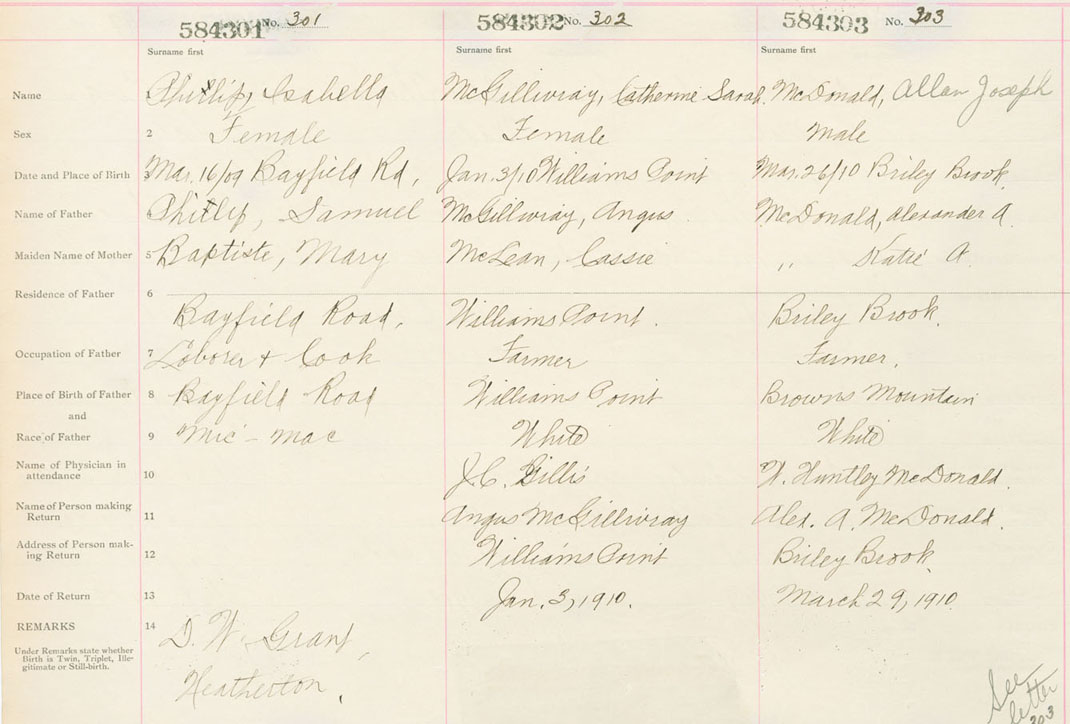 584301 No. 301 584302 No. 302 584303 No. 303
Surname first Surname first Surname first
Name 1 Phillip, Isabella McGillivray, Catherine Sarah. McDonald, Allan Joseph
Sex 2 Female Female Male
Date and Place of Birth 3 Mar. 16/09 Bayfield Rd, Jan. 3/10 Williams Point Mar. 26/10 Briley Brook.
Name of Father 4 Phillip, Samuel McGillivray, Angus. McDonald, Alexander A.
Maiden Name of Mother 5 Baptiste, Mary McLean, Cassie " Katie A.
Residence of Father 6
Bayfield Road, Williams Point. Briley Brook.
Occupation of Father 7 Laborer + Cook Farmer Farmer.
Place of Birth of Father 8 Bayfield Road Williams Point Browns Mountain
and
Race of Father 9 Mic-mac White White
Name of Physician in
attendance 10 J.C. Gillis W. Huntley McDonald.
Name of Person making
Return 11 Angus McGillivray Alex. A. McDonald.
Address of Person mak-
ing Return 12 Williams Point Briley Brook.
Date of Return 13 Jan. 3, 1910. March 29, 1910.
REMARKS 14 D. W. Grant,
Under Remarks state whether
Birth is Twin, Triplet, Ille-
gitimate or Still-birth.
Heatherton,
See
letter
303